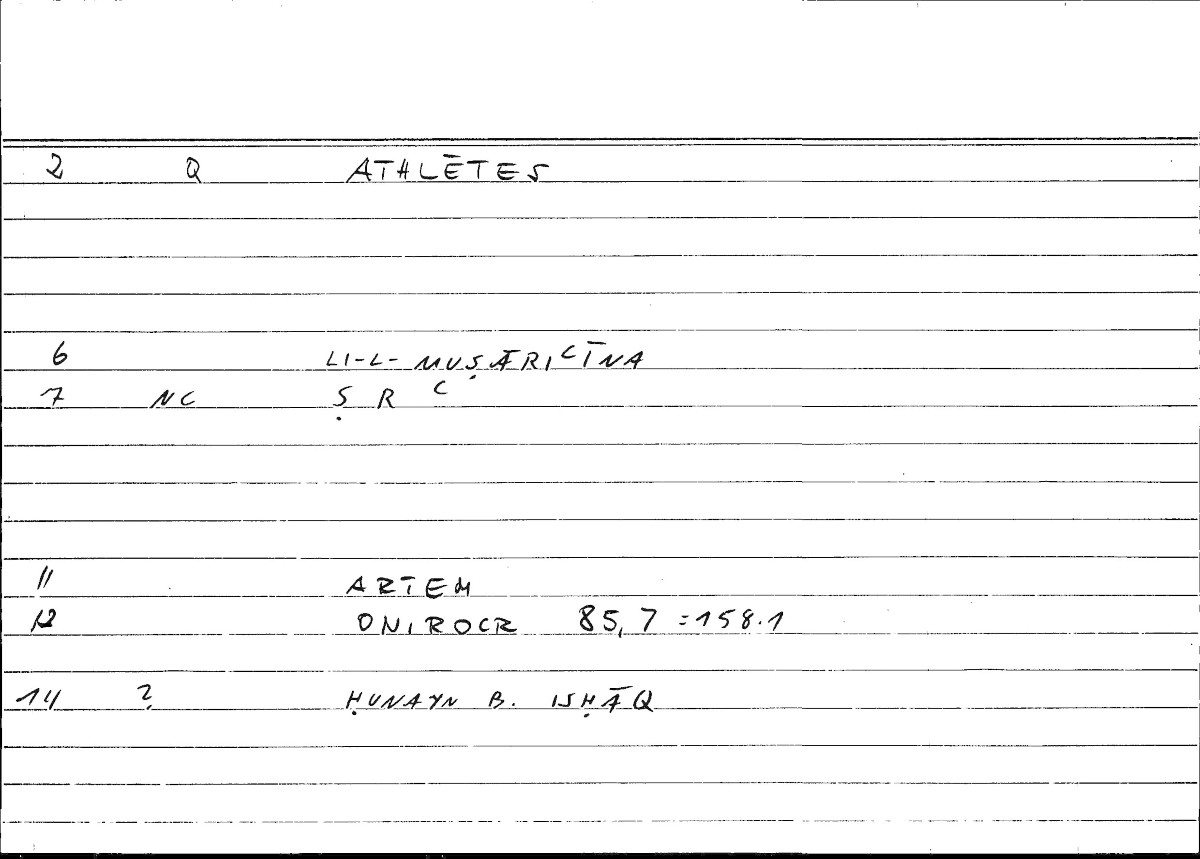 2 Q ATHLĒTES
6 LI-L-MUṢĀRIʿĪNA
7 NC Ṣ R ʿ
11 ARTEM
12 ONIROCR 85,7 =158.1
14 ? ḤUNAYN B. ISḤĀQ